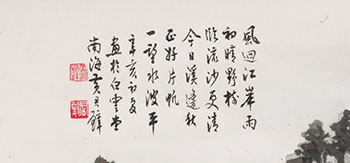 風迴江岸雨
初晴野樹
臨流沙更清
今日溪邊秋
正好片帆
一望水波平
辛亥初夏
畫於白雲堂
南海黃君璧